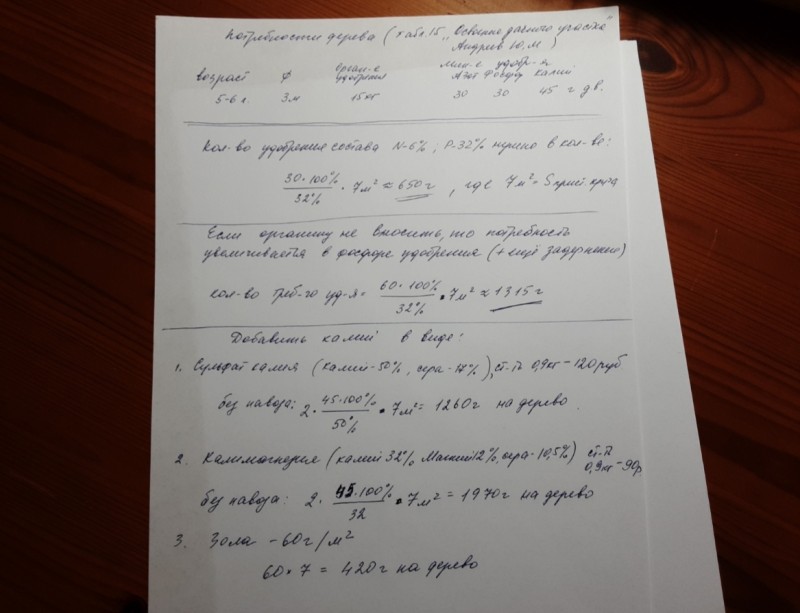 Потребности дерева (табл.15 „Освоение дачного участка"
Андреев Ю.М)
возраст ф Органи-е удобрения Мин-е удобр-я Азот Фосфор Калий
5-6 л. 3м 15кг 30 30 45 г д.в.
Кол-во удобрения состава N-6%, P-32% нужно в кол-ве:
30·100%
32% · 7м² ≈ 650г, где 7м² = S прист. круга
Если органику не вносить, то потребность
увеличивается в фосфоре удобрения (+ ещё задернение)
кол-во треб-го уд-я = 60·100%
32% · 7м² ≈ 1315г
Добавить калий в виде:
1. Сульфат калия (калий-50%, сера-17%), ст-ть 0,9кг - 120руб
без навоза: 2 · 45·100%
50% · 7м² = 1260г на дерево
2. Калимагнезия (калий 32%, Магний 12%, сера-10,5%) ст-ть
0,9кг - 90р
без навоза: 2 · 45·100%
32 · 7м² = 1970г на дерево
3. Зола - 60г/м²
60×7 = 420г на дерево